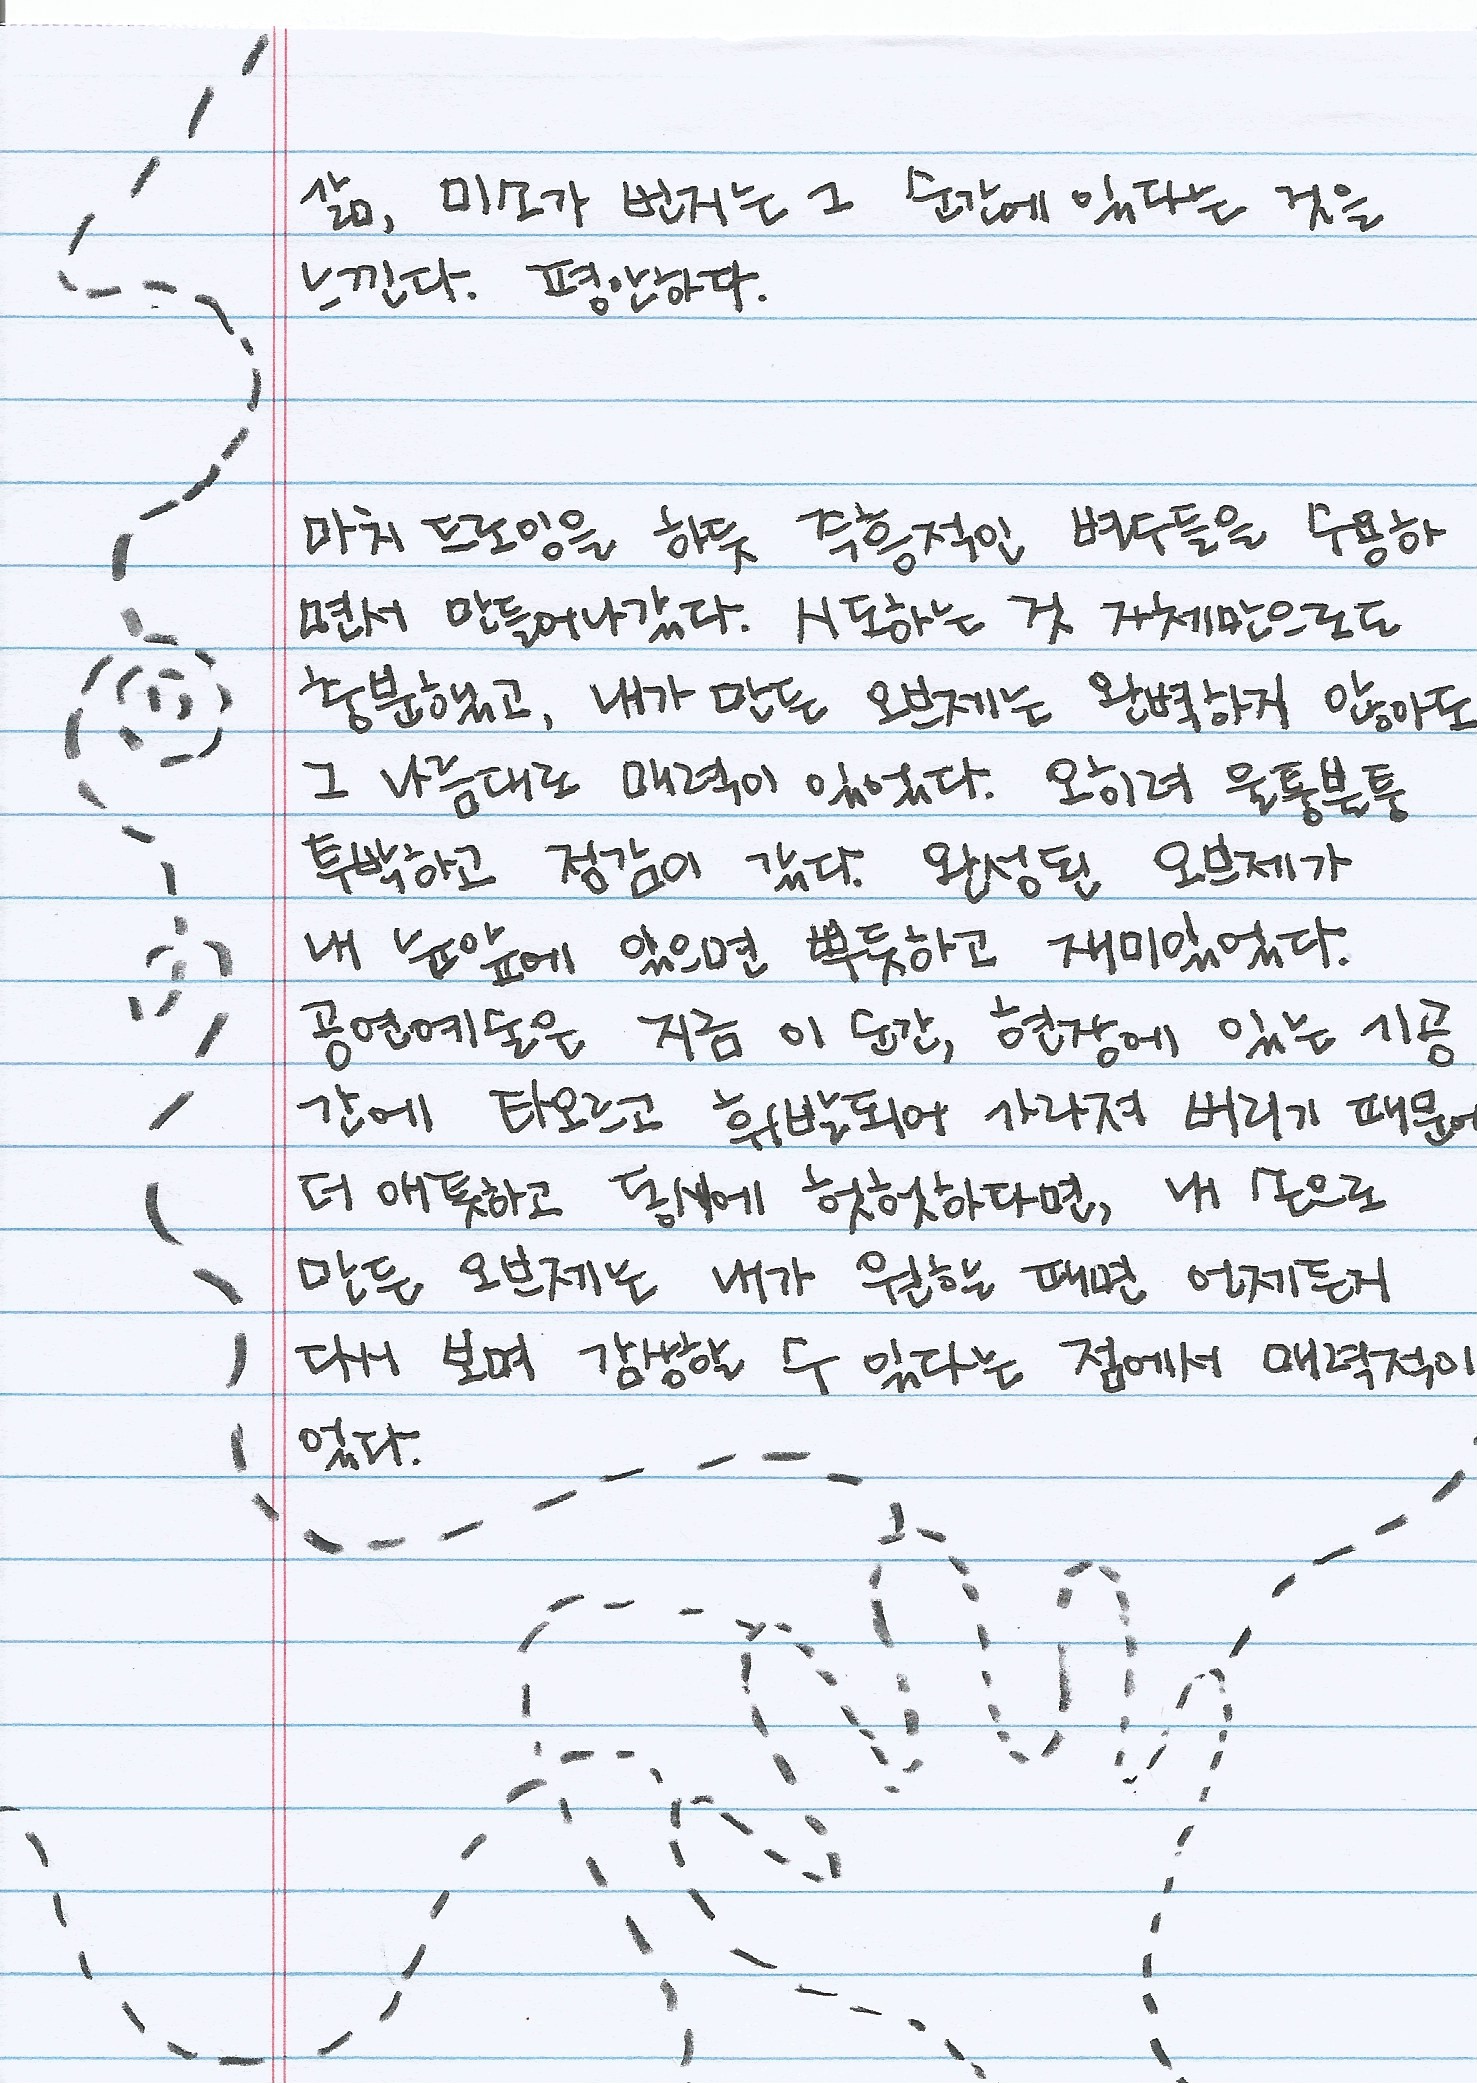 삶, 미소가 번지는 그 순간에 있다는 것을
느낀다. 평안하다.
마치 드로잉을 하듯 즉흥적인 변수들을 수용하
면서 만들어나갔다. 시도하는 것 자체만으로도
충분했고, 내가 만든 오브제는 완벽하지 않아도
그 나름대로 매력이 있었다. 오히려 울퉁불퉁
투박하고 정감이 갔다. 완성된 오브제가
내 눈앞에 있으면 뿌듯하고 재미있었다.
공연예술은 지금 이 순간, 현장에 있는 시공
간에 타오르고 휘발되어 사라져 버리기 때문에
더 애틋하고 동시에 헛헛하다면, 내 손으로
만든 오브제는 내가 원할 때면 언제든지
다시 보며 감상할 수 있다는 점에서 매력적이
었다.